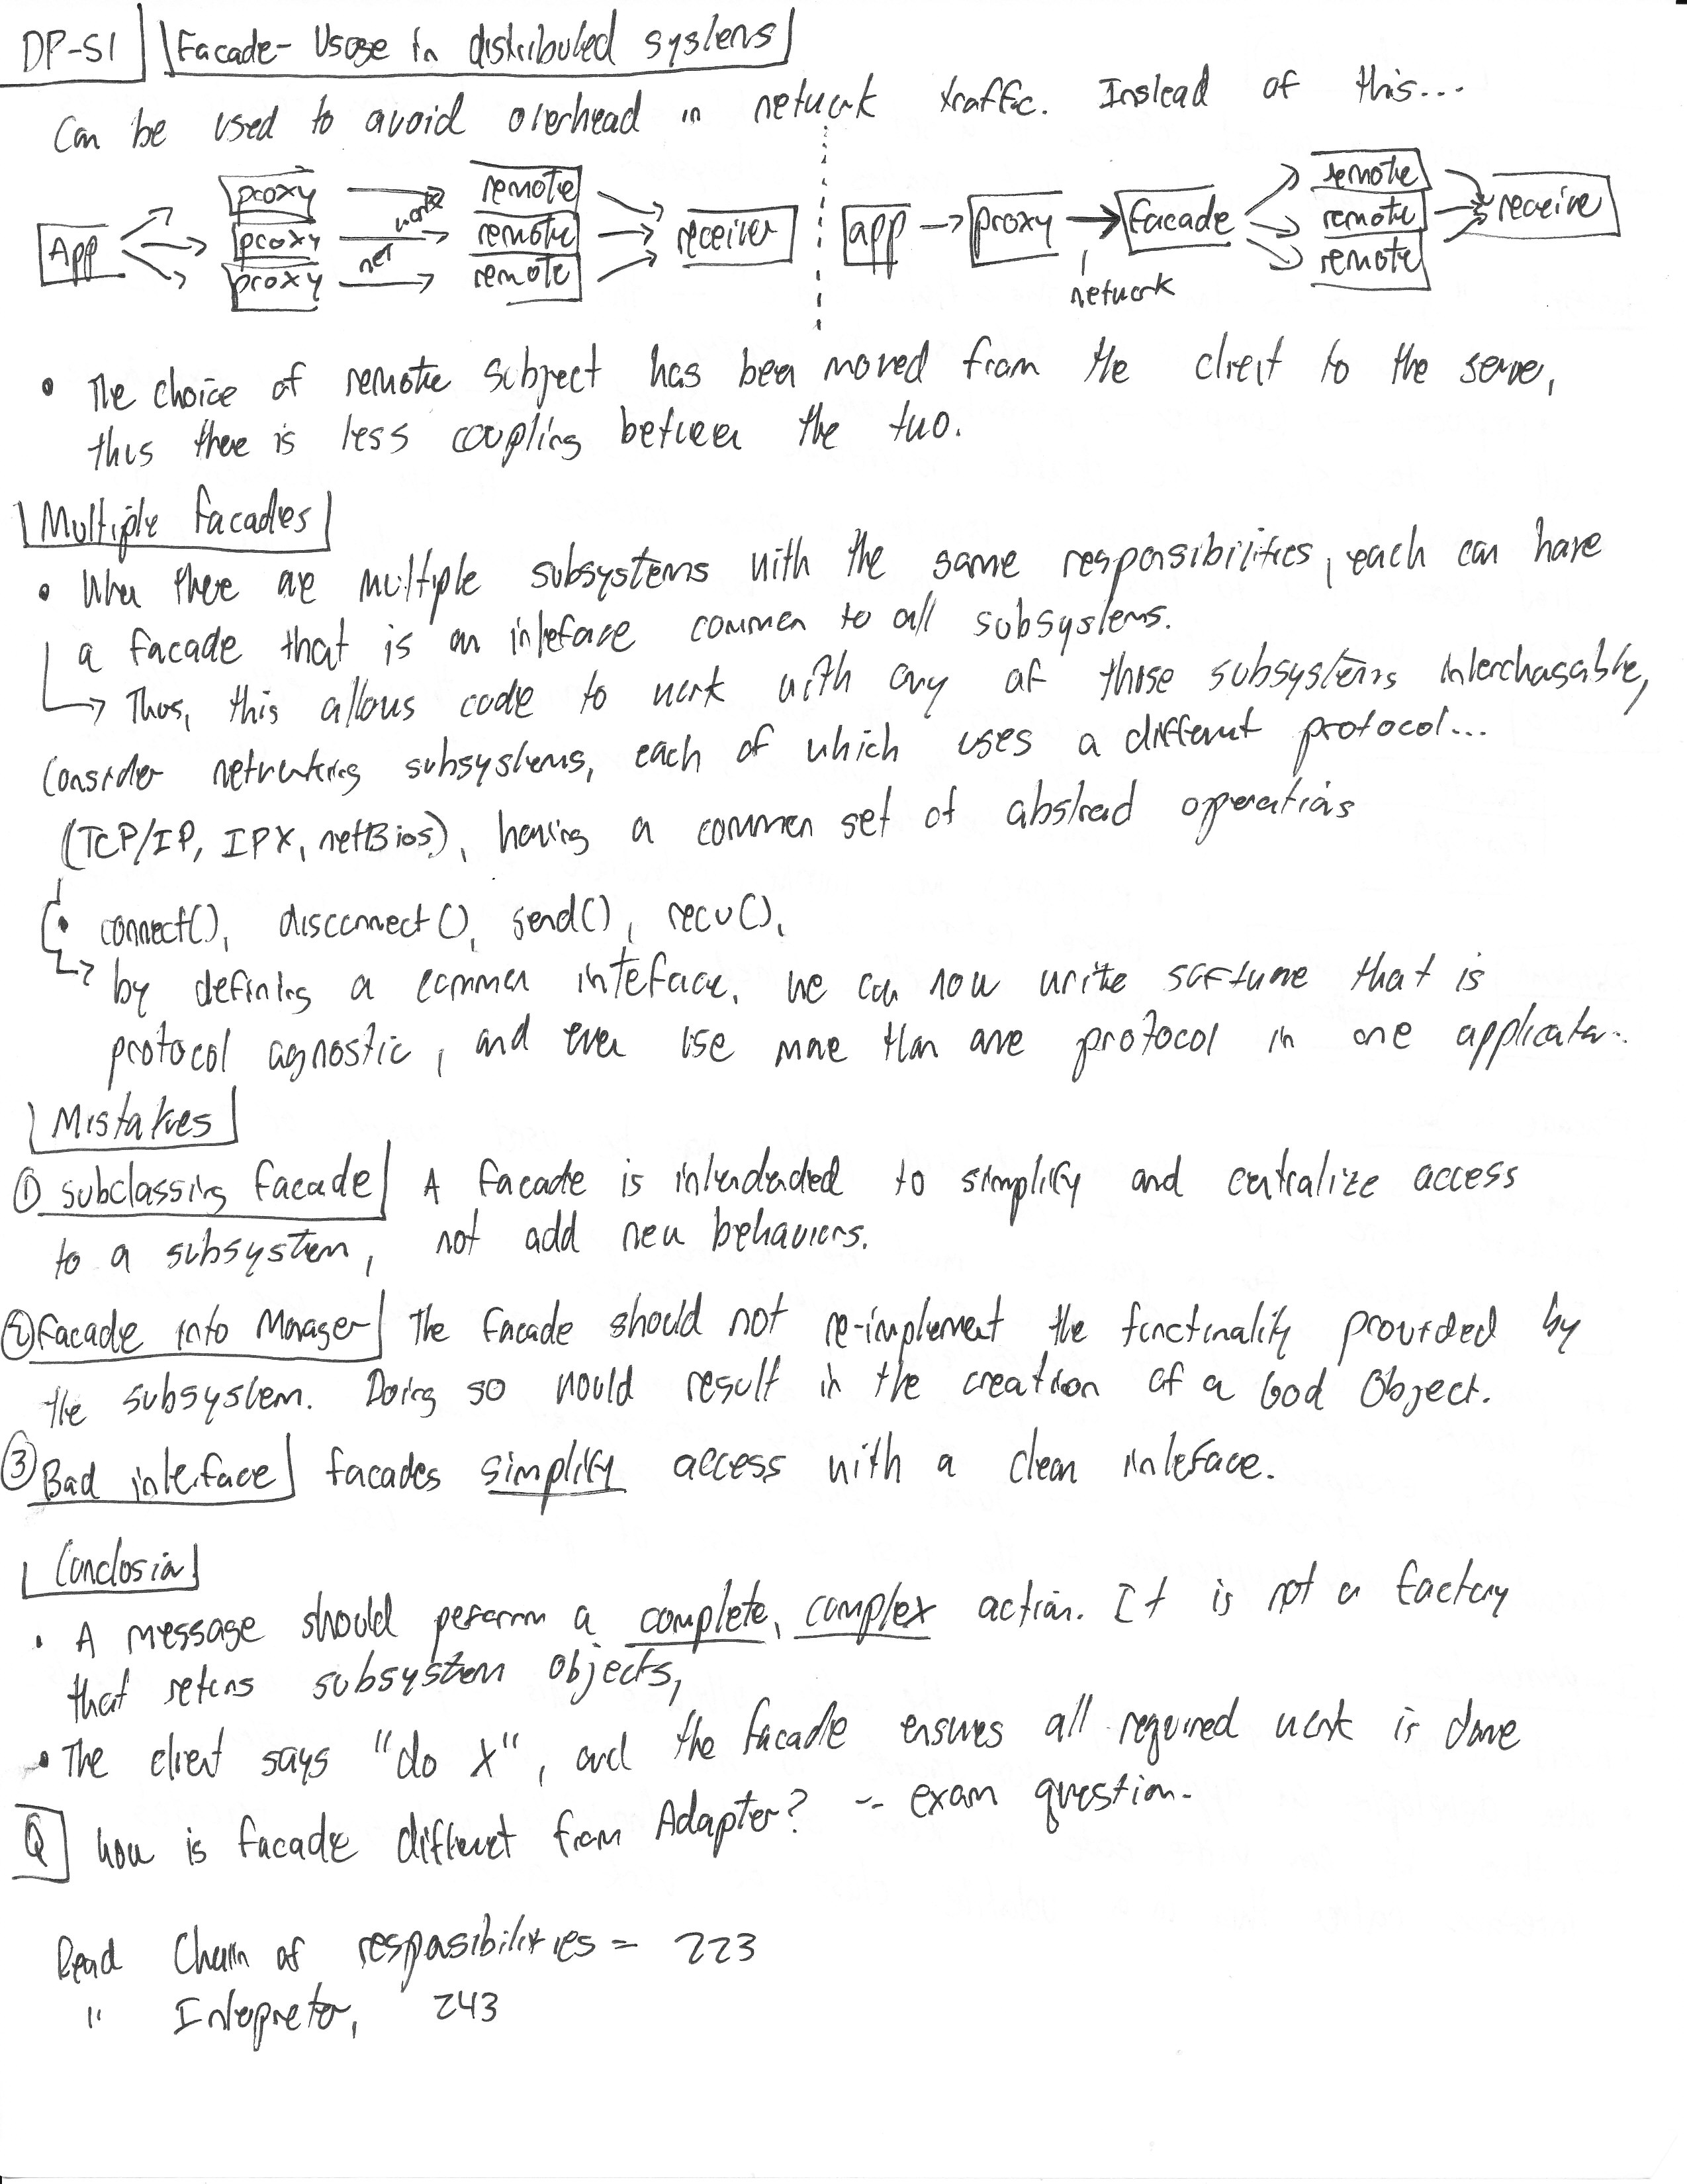 DP-S1 Facade- Usage in distributed systems
Can be used to avoid overhead in network traffic. Instead of this...
App proxy proxy proxy network remote remote remote receiver
app proxy facade network remote remote remote receive
• The choice of remote subject has been moved from the client to the serve,
thus there is less coupling between the two.
Multiple facades
• When there are multiple subsystems with the same responsibilities, each can have
a facade that is an inteface common to all subsystems.
→ Thus, this allows code to work with any of those subsystems interchangable,
Consider networking subsystems, each of which uses a different protocol...
(TCP/IP, IPX, netBios), having a common set of abstract operations
• connect(), disconnect(), send(), recv(),
→ by defining a common inteface, we can now write software that is
protocol agnostic, and even use more than one protocol in one application.
Mistakes
① subclassing facade A facade is intendended to simplify and centralize access
to a subsystem, not add new behaviors.
② facade into Manager The facade should not re-implement the functinality provided by
the subsystem. Doing so would result in the creation of a God Object.
③ Bad interface facades simplify access with a clean inteface.
Conclusion
• A message should perform a complete, complex action. It is not a factory
that returns subsystem objects,
• The client says "do X", and the facade ensures all required work is done
Q how is facade different from Adapter? -- exam question.
Read Chain of responsibilities = 223
" Interpretor, 243